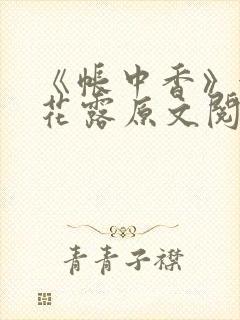 《帐中香》
花露原文阅
青青子襟